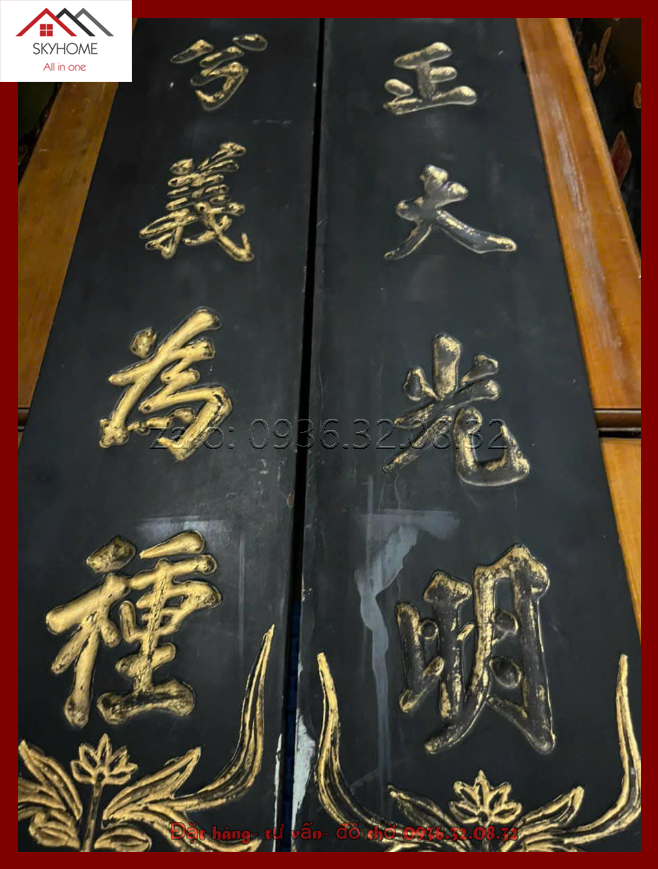 SKYHOME
All in one
正大光明
兮義為種
zalo: 0936.32.08.32
Đặt hàng- tư vấn- đồ thờ 0936.32.08.32